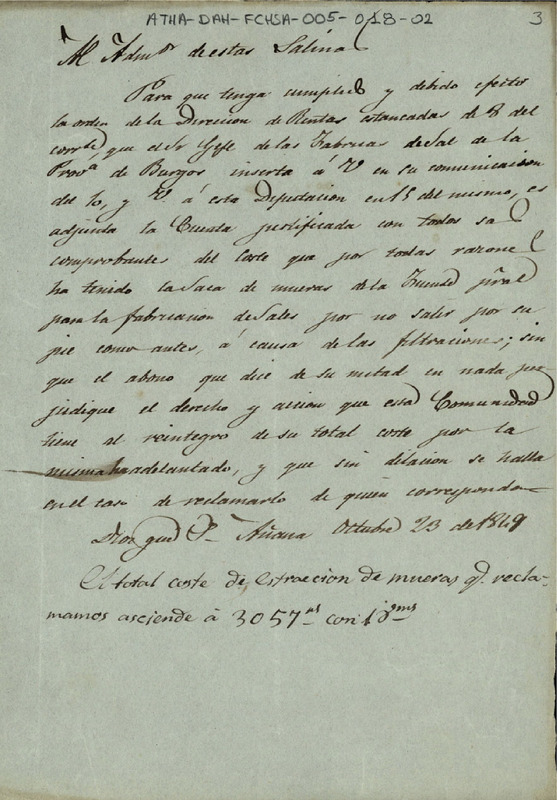 ATHA-DAH-FCHSA-005-018-02
3
Al Admor de estas Salinas
Para que tenga cumplido y debido efecto
la orden de la Direccion de Rentas estancadas de 8 del
corrte, que el Sr Gefe de las Fabricas de Sal de la
Prova de Burgos inserta á V en su comunicacion
del 10, y V á esta Diputacion en 15 del mismo, es
adjunta la Cuenta justificada con todos sus
comprobantes del coste que por todas razones
ha tenido la saca de mueras de la Fuente pral
para la fabricacion de Sales por no salir por su
pie como antes, á causa de las filtraciones; sin
que el abono que dice de su mitad en nada per
judique el derecho y accion que esta Comunidad
tiene al reintegro de su total coste por la
misma ha adelantado, y que sin dilacion se halla
en el caso de reclamarlo de quien corresponda
Dios gue V. Añana Octubre 23 de 1849
El total coste de estraccion de mueras q. recla-
mamos asciende á 3057 rs con